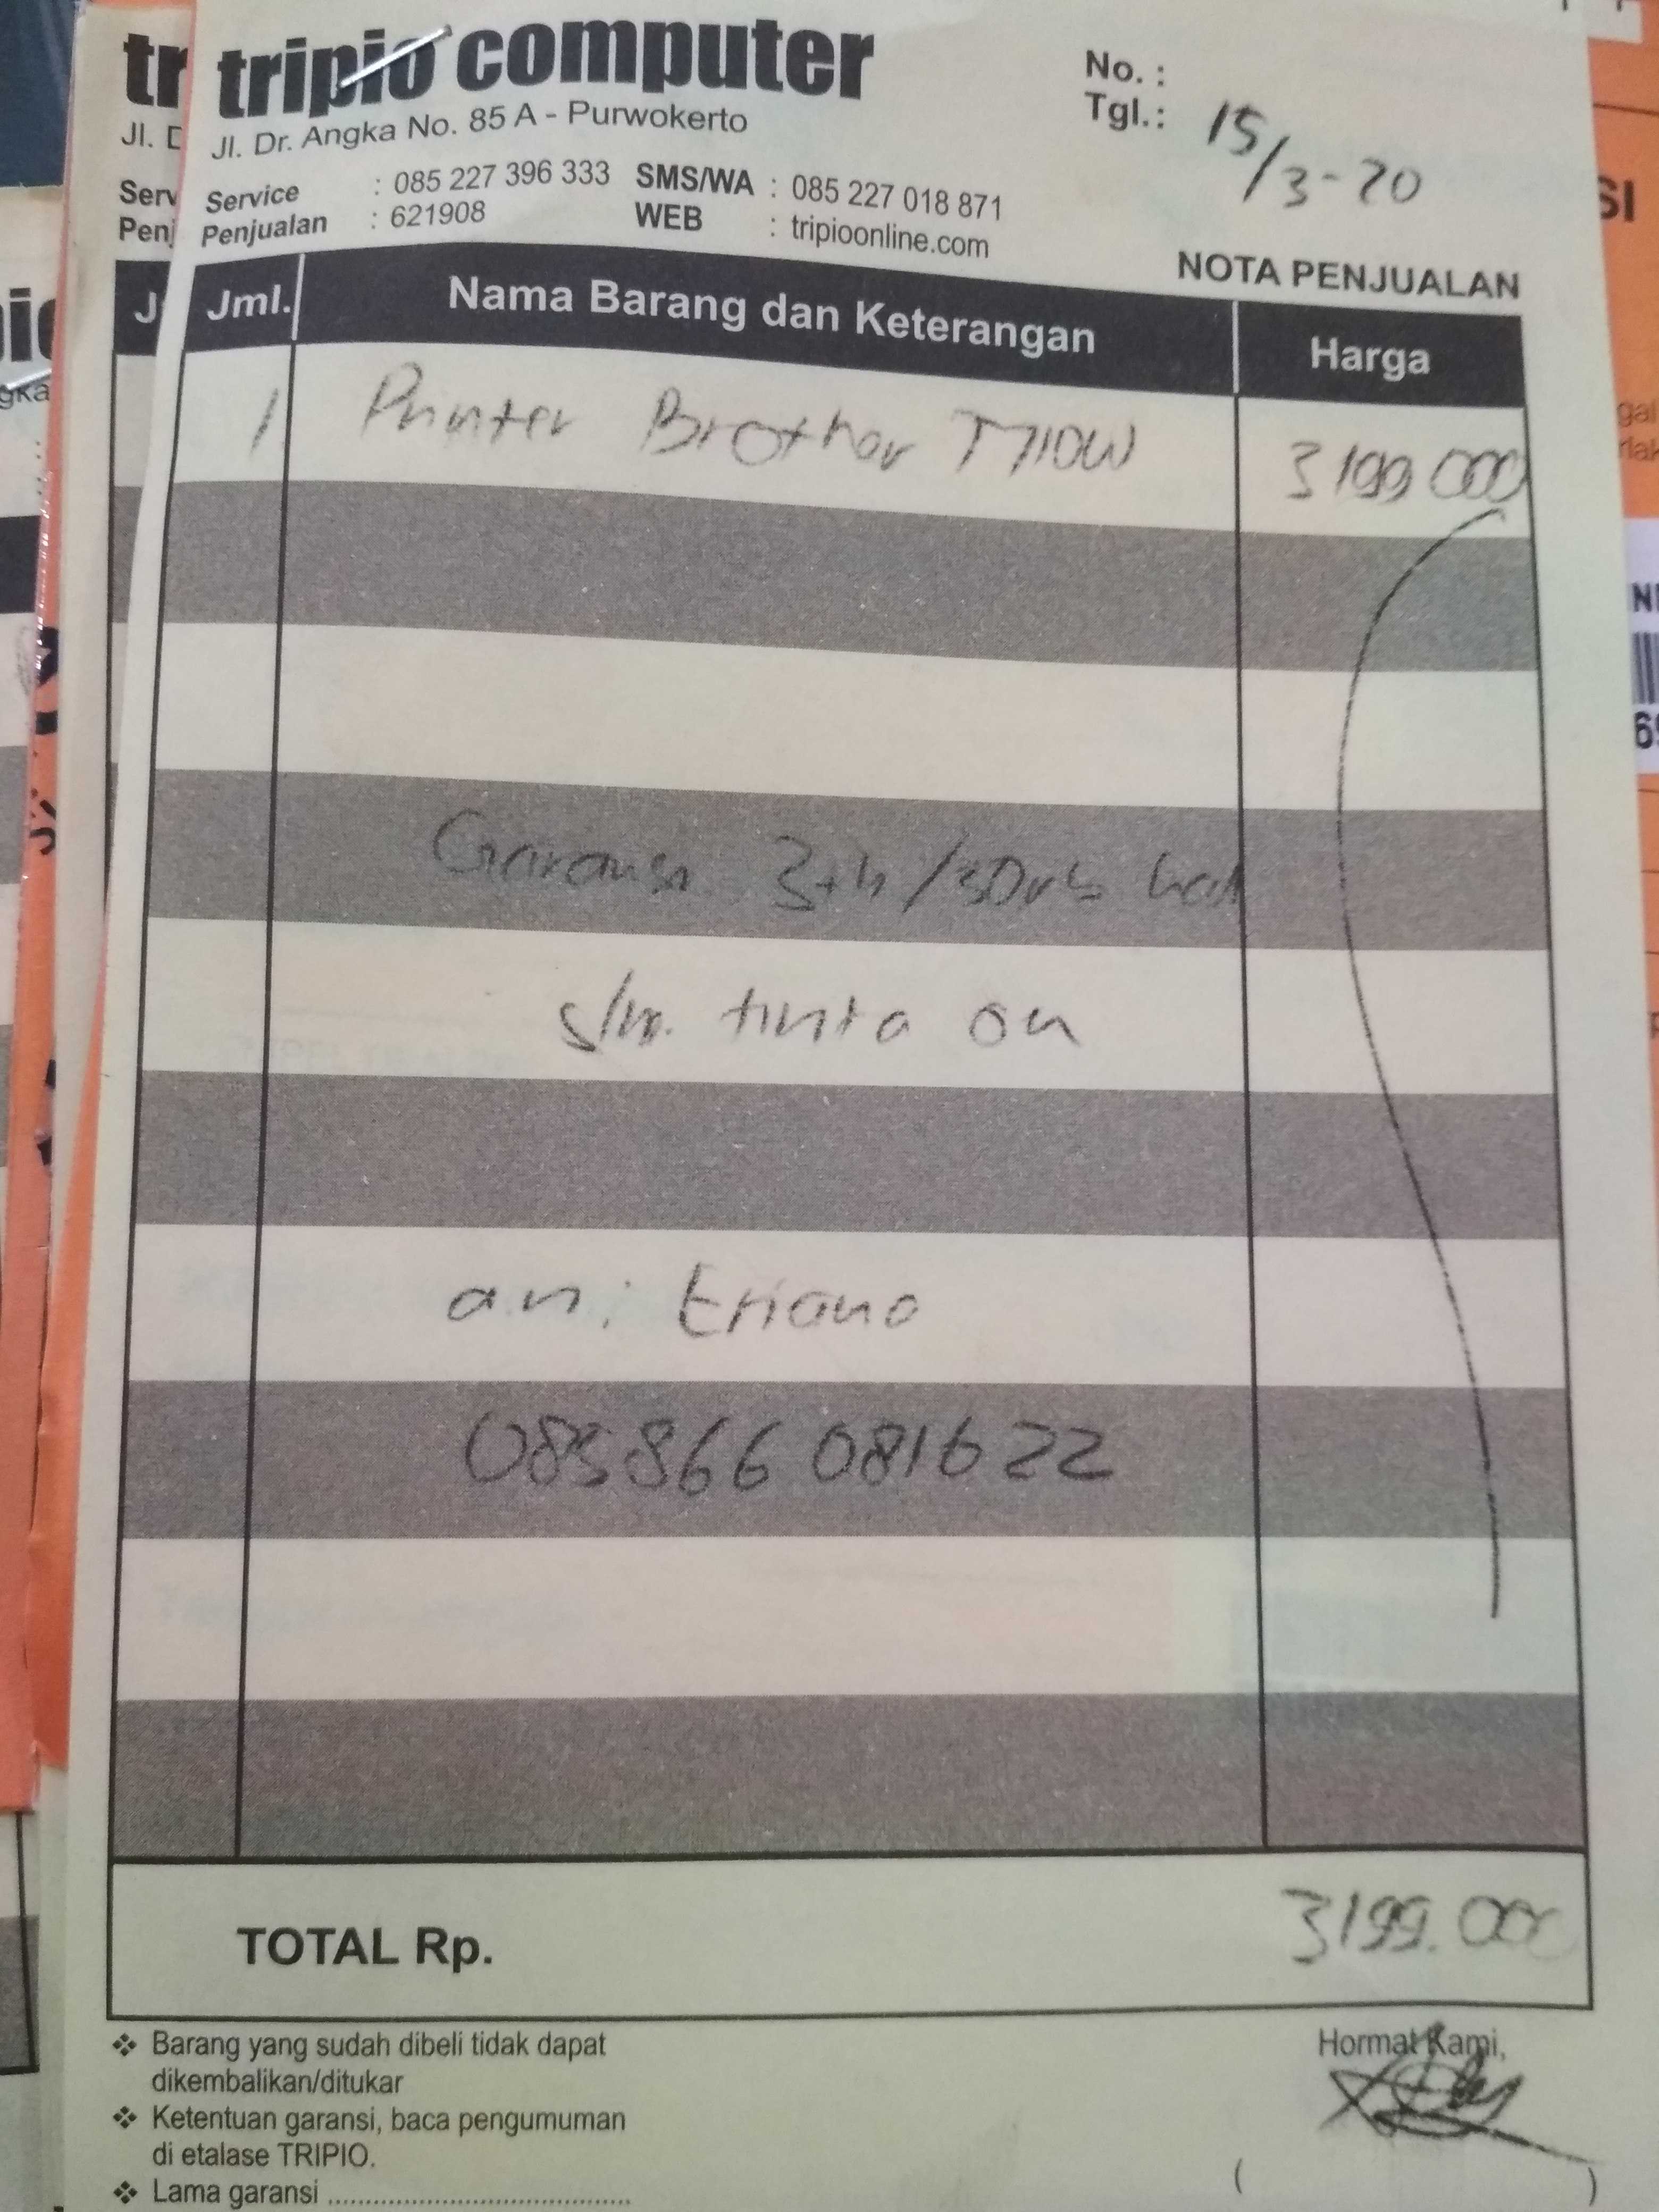 tripio computer
Jl. Dr. Angka No. 85 A - Purwokerto
Service : 085 227 396 333 SMS/WA : 085 227 018 871
Penjualan : 621908 WEB : tripioonline.com
No. :
Tgl.: 15/3-20
NOTA PENJUALAN
Jml. Nama Barang dan Keterangan Harga
1 Printer Brother T710W 3199 000
Garansi 3th/30rb hal
slm. tinta ori
an: Eriana
085866 081622
TOTAL Rp. 3199.000
❖ Barang yang sudah dibeli tidak dapat
dikembalikan/ditukar
❖ Ketentuan garansi, baca pengumuman
di etalase TRIPIO.
❖ Lama garansi ........................................
Hormat Kami,
( )